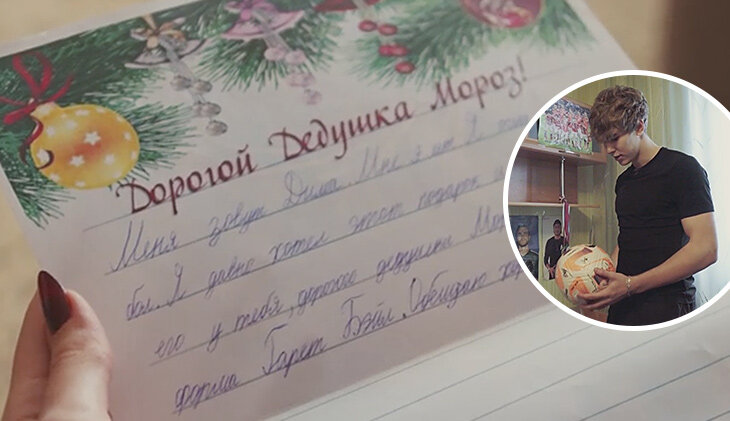 Дорогой Дедушка Мороз!
Меня зовут Дима. Мне 9 лет. Я
бол. Я давно хотел этот подарок и
его у тебя, дорогой дедушка Мор
форма Гарет Бэйл. Обещаю хор